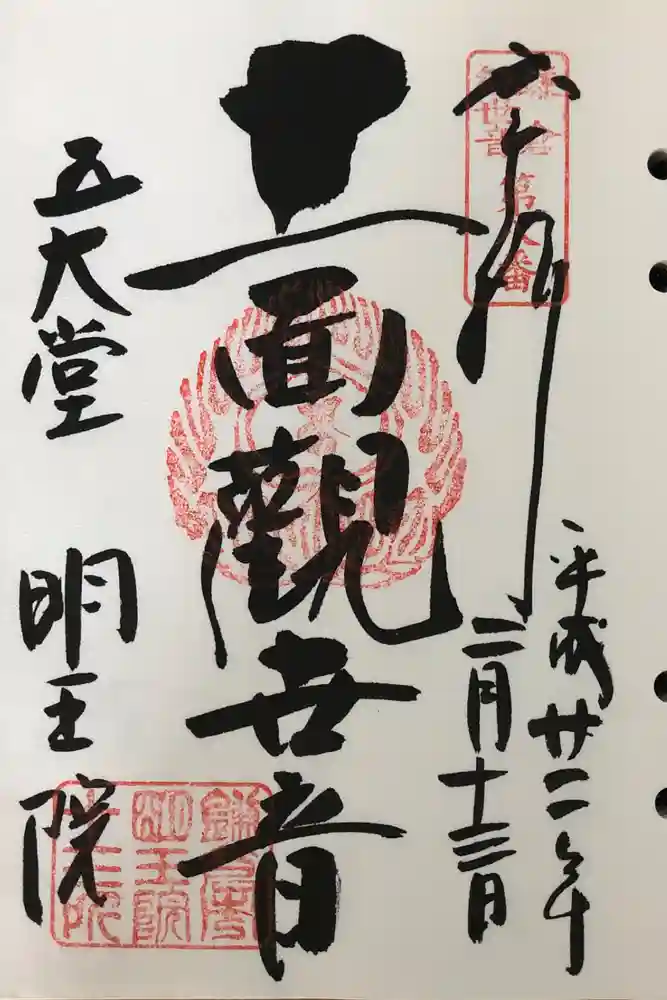 鎌倉
観世音
第八番
平成廿二年
二月十三日
十一面觀世音
五大堂
明王院
鎌倉
明王院